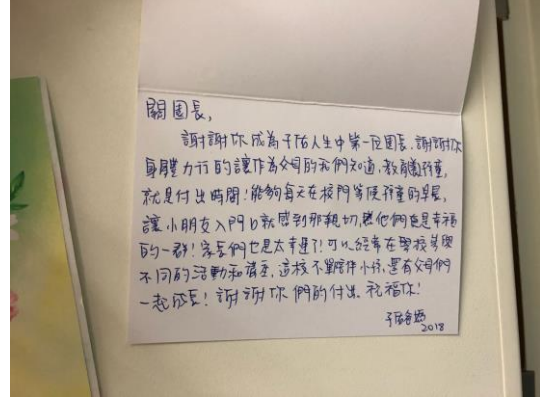 關園長,
謝謝你成為子佑人生中第一位園長, 謝謝你
身體力行的讓作為父母的我們知道, 教育孩童,
就是付出時間! 能夠每天在校門等候孩童的園長,
讓小朋友入門口就感到那親切, 他們也是幸福
的一群! 家長們也是太幸運了! 可以經常在學校參與
不同的活動和, 這校不單陪伴小孩, 還有父母們
一起成長! 謝謝你們的付出. 祝福你!
子佑
2018